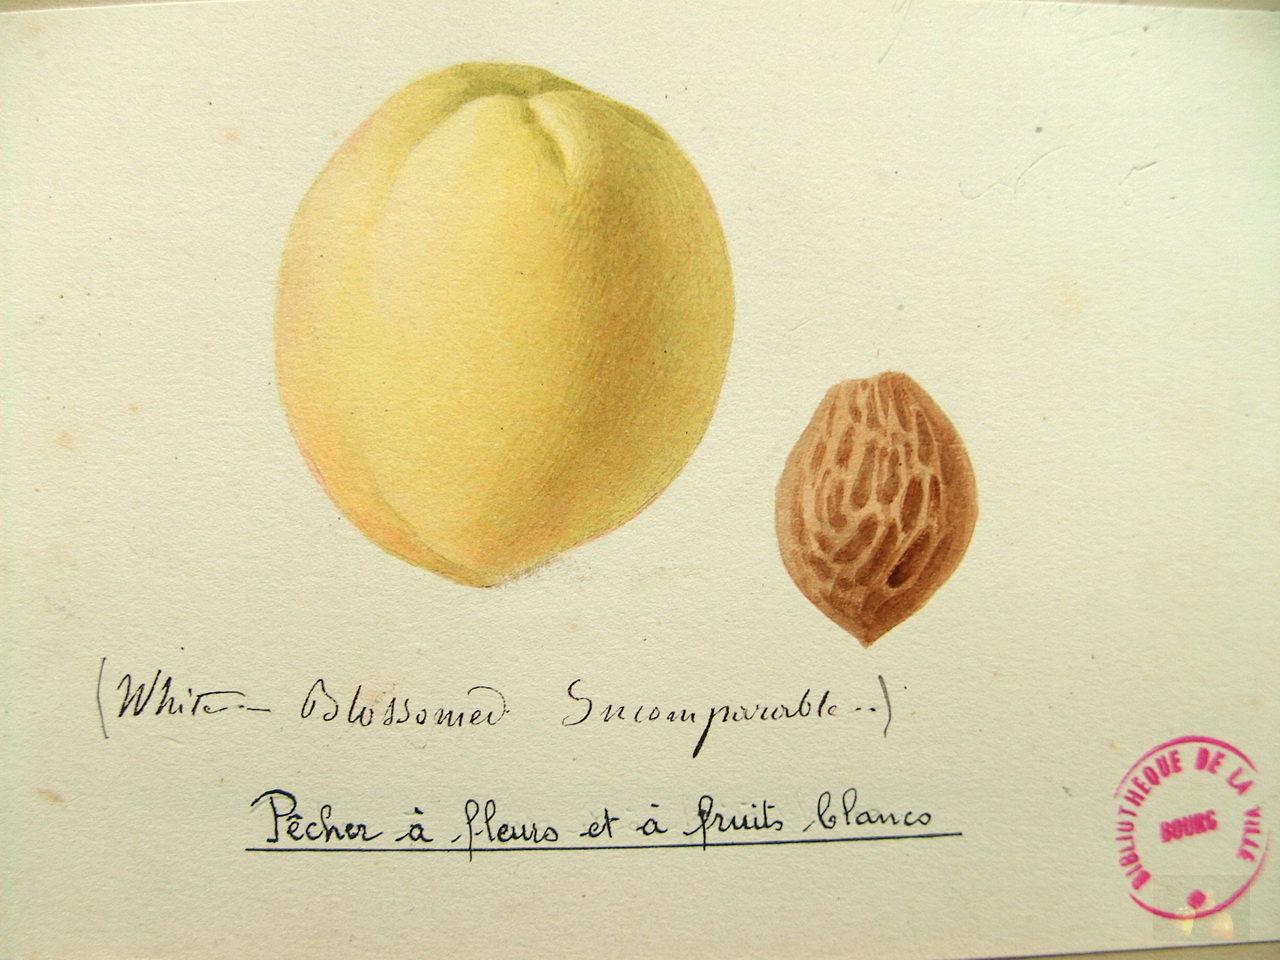 (White-- Blossomed Incomparable..)
Pêcher à fleurs et à fruits blancs
BIBLIOTHEQUE DE LA VILLE
BOURG